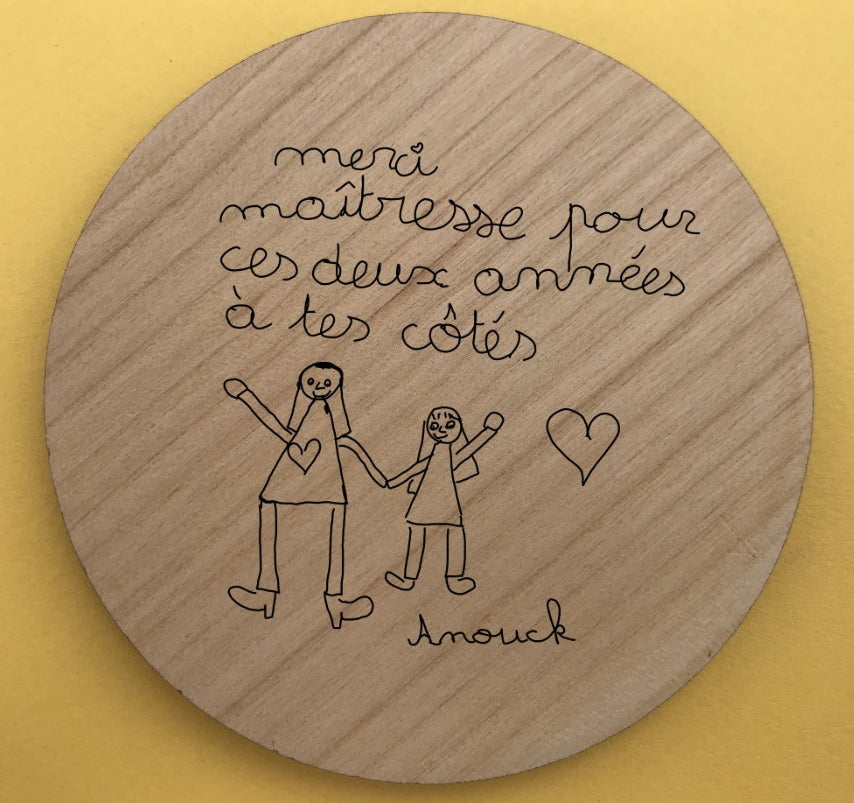 merci
maîtresse pour
ces deux années
à tes côtés
Anouck